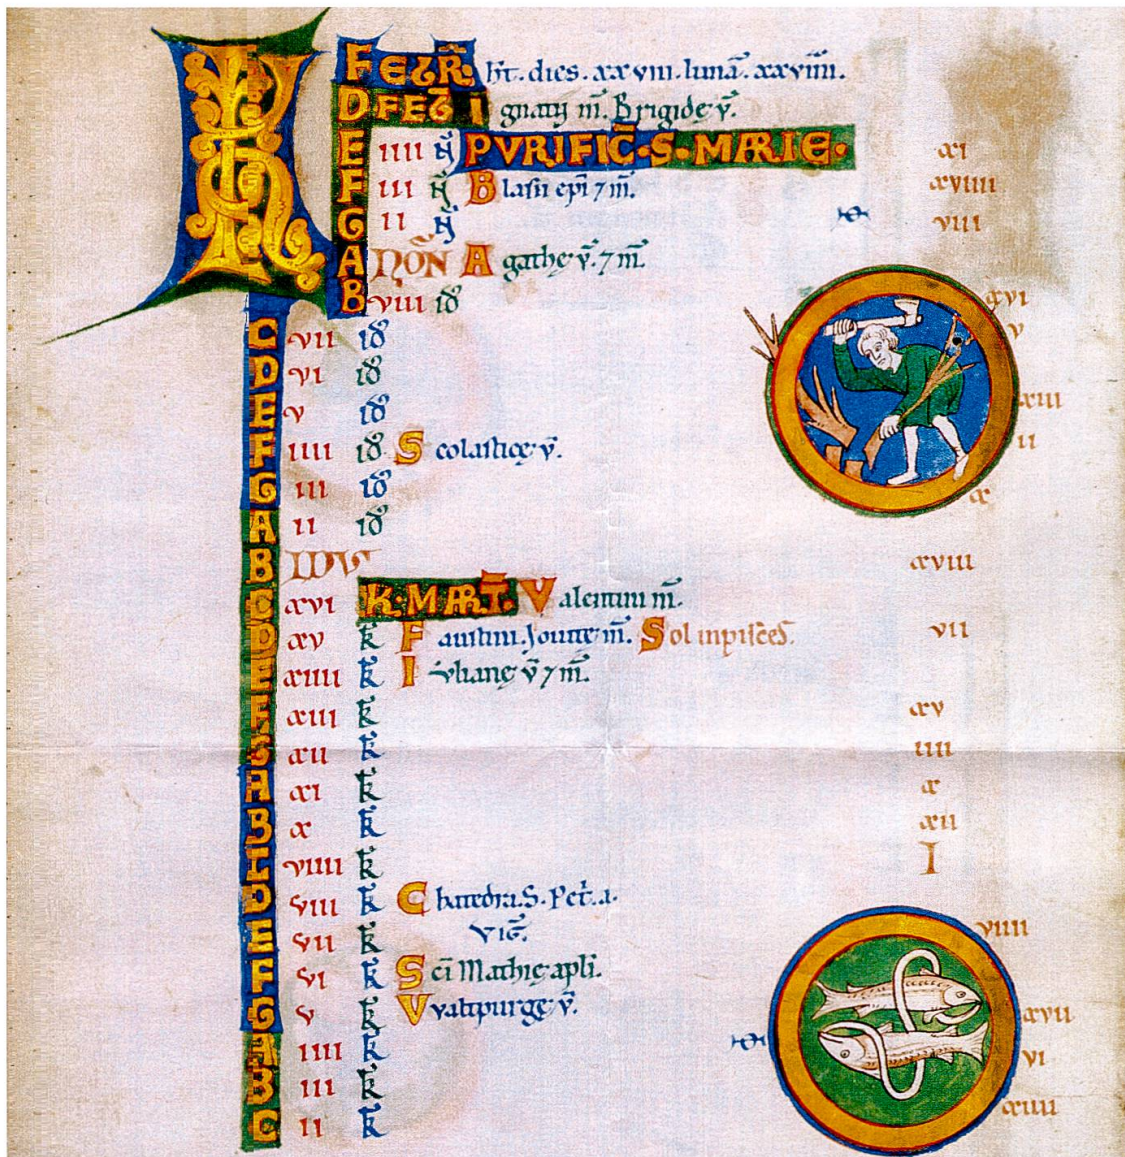 KL FEBR̄· h̄t. dies. xxviii. lunā. xxviiii.
D·FEB̄ Ignatij m̄. Brigidę v̄.
E iiii N̄ PVRIFIC̄·S·MARIE· xi
F iii N̄ Blasii ep̄i ⁊ m̄. xviiii
G ii N̄ viii
A NOÑ Agathę v̄. ⁊ m̄.
B viii id̄ xvi
C vii id̄ v
D vi id̄
E v id̄ xiii
F iiii id̄ Scolasticę v̄. ii
G iii id̄
A ii id̄ x
B IDVS xviii
C xvi K·MART̄. Valentini m̄.
D xv k̄ Faustini. Jouitę m̄. Sol in pisces. vii
E xiiii k̄ Iulianę v̄ ⁊ m̄.
F xiii k̄ xv
G xii k̄ iiii
A xi k̄ x
B x k̄ xii
C viiii k̄ I
D viii k̄ Chatedra. S. Pet̄. a.
E vii k̄ VIG̅. viiii
F vi k̄ Sc̄i Mathię apl̄i.
G v k̄ Vvaltpurgę v̄. xvii
A iiii k̄ vi
B iii k̄ xiiii
C ii k̄